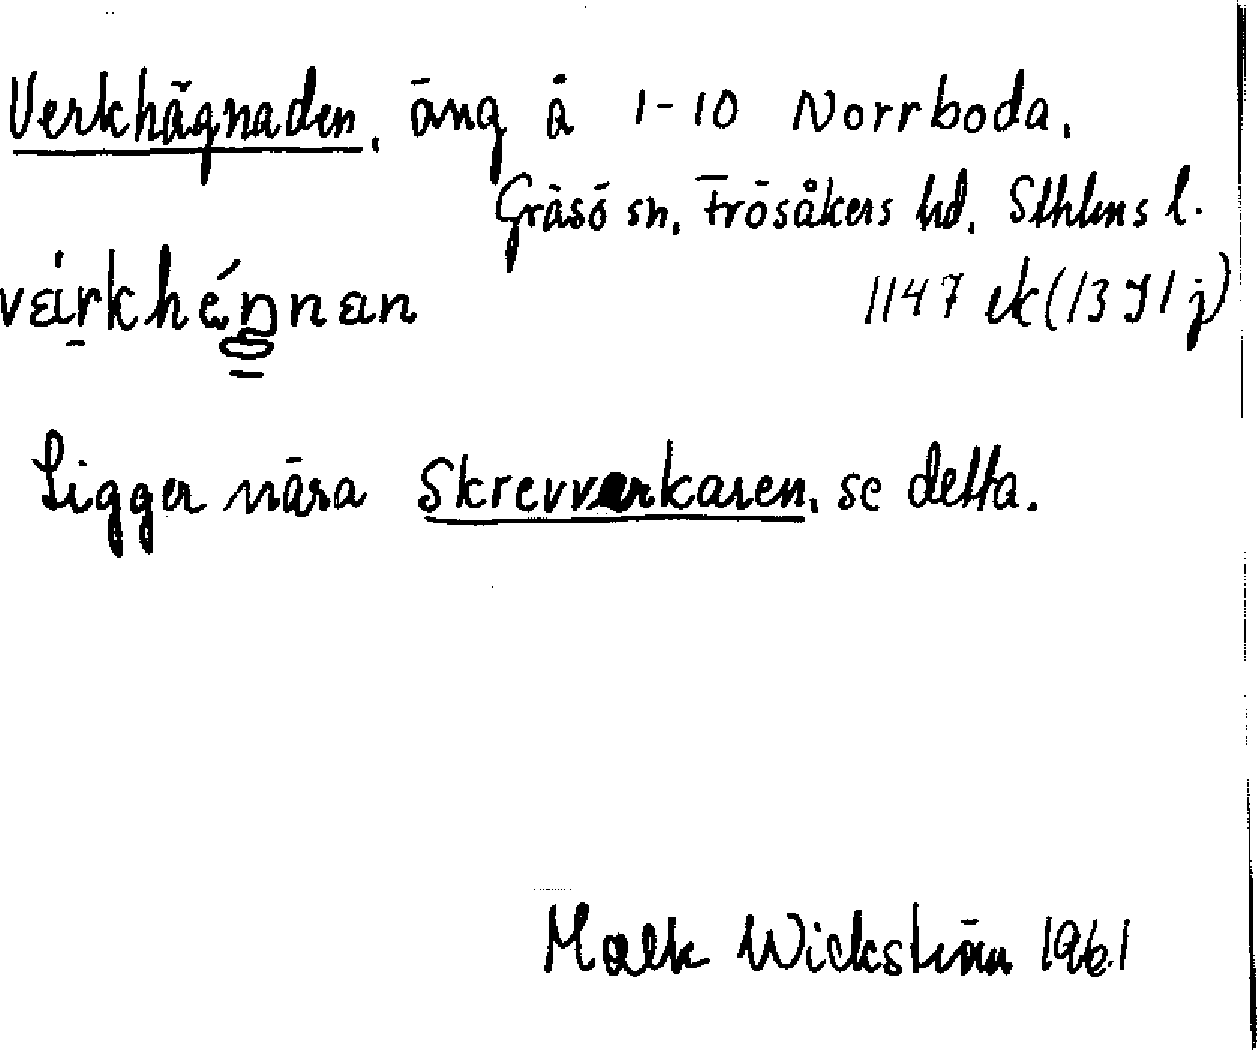 Verkhägnaden, äng å 1-10 Norrboda,
Gräsö sn, Frösåkers hd, Sthlms l.
1147 ek (13 I 1 j)
Ligger nära Skrevverkaren, se detta.
Wickström 1961